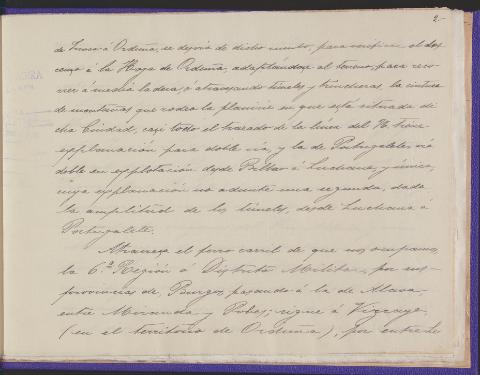 2
de Izarra á Orduña, se desvía de dicho punto, para verificar el des
censo á la Hoya de Orduña, adaptándose al terreno, para reco
rrer á media ladera, ó atravesando túneles y trincheras, la cintura
de montañas que rodea la planicie en que está situada di
cha Ciudad, casi todo el trazado de la línea del N. tiene
explanación para doble vía, y la de Portugalete, vía
doble en explotación desde Bilbao á Luchana, y única,
cuya explanación no admite una segunda, dada
la amplitud de los túneles, desde Luchana á
Portugalete.
Atraviesa el ferro carril de que nos ocupamos
la 6.ª Región ó Distrito Militar, por sus
provincias de Burgos, pasando á la de Alava,
entre Miranda y Pobes; sigue á Vizcaya,
(en el territorio de Orduña), por entre